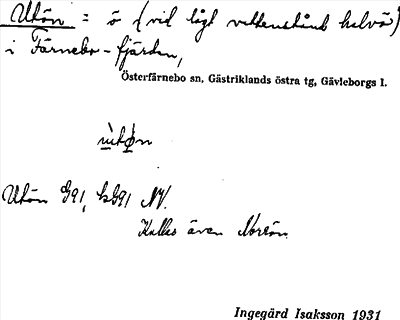 Utön = ö (vid lågt vattenstånd halvö)
i Färnebo-fjärden,
Österfärnebo sn, Gästriklands östra tg, Gävleborgs l.
ùtø̀n
Utön G91, hG91 NV.
Kallas även Norrön.
Ingegärd Isaksson 1931